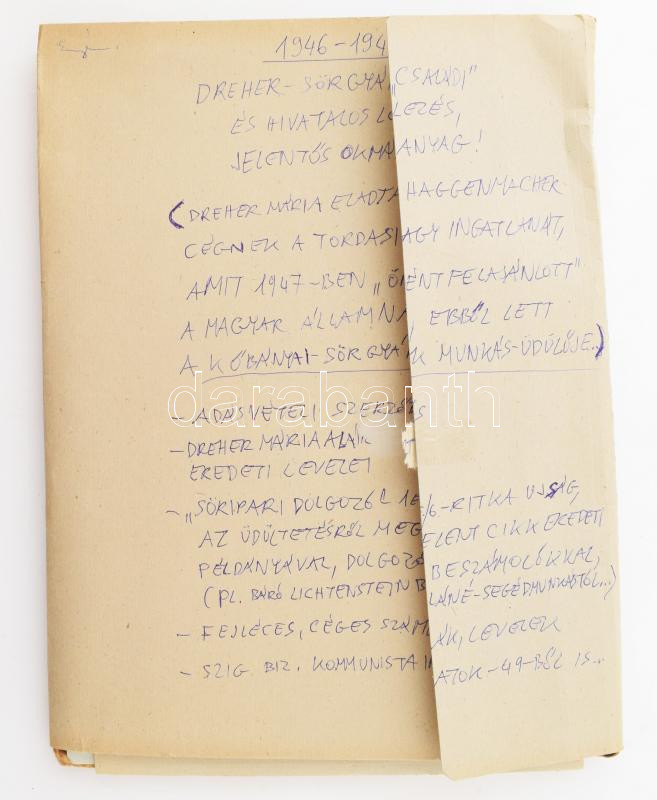 1946-194
DREHER-SÖRGYÁ „CSALÁDI"
ÉS HIVATALOS L LEZÉS,
JELENTŐS OKMÁ ANYAG!
(DREHER MÁRIA ELADTA HAGGENMACHER
CÉGNEK A TORDASI AGY INGATLANÁT,
AMIT 1947-BEN „Ö ÉNT FELAJÁNLOTT"
A MAGYAR ÁLLAMNA, EBBŐL LETT
A KŐBÁNYAI-SÖRGYÁ K MUNKÁS-ÜDÜLŐJE..)
darabanth
- ADÁSVÉTELI SZERZŐ S
- DREHER MÁRIA ALÁÍ T
EREDETI LEVELEI
- „SÖRIPARI DOLGOZÓ -RITKA UJSÁG,
AZ ÜDÜLTETÉSRŐL MEG ELENT CIKK EREDETI
PÉLDÁNYÁVAL, DOLGOZÓ BESZÁMOLÓKKAL,
(PL. BÁRÓ LICHTENSTEIN B LÁNÉ-SEGÉDMUNKÁSTÓL...)
- FEJLÉCES, CÉGES SZÁM ÁK, LEVELEK
- SZIG. BIZ. KOMMUNISTA I ATOK-49-BŐL IS...